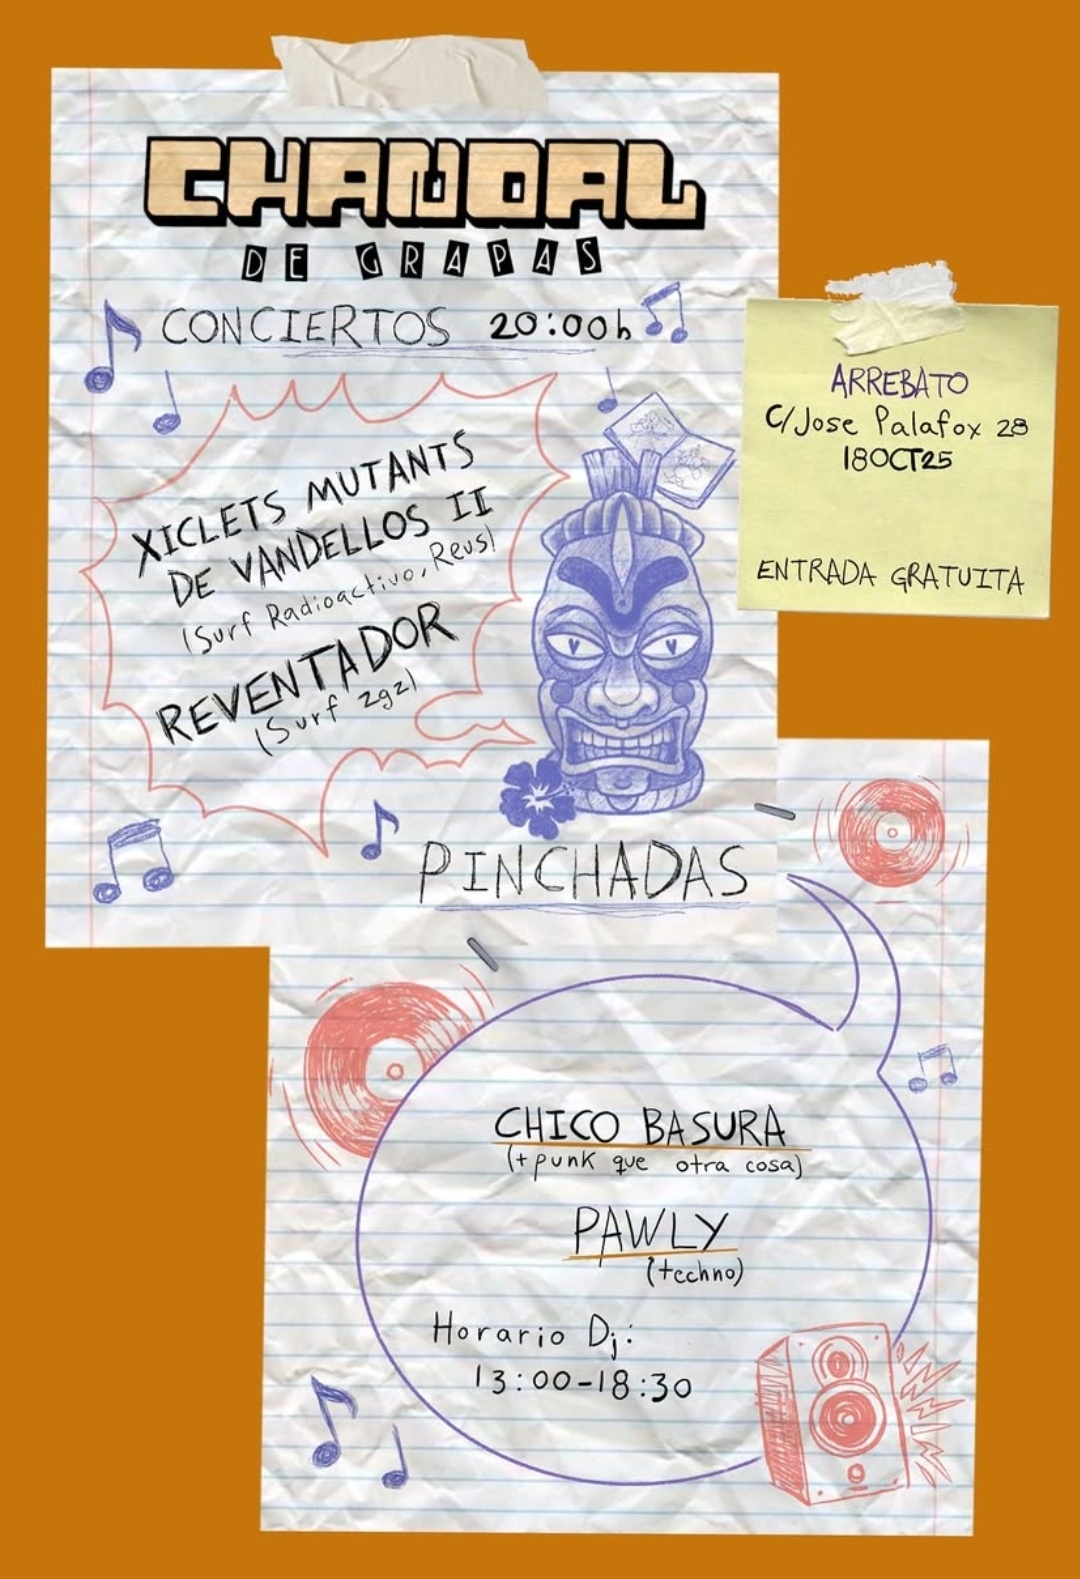 CHANDAL
DE GRAPAS
CONCIERTOS 20:00h
XICLETS MUTANTS
DE VANDELLOS II
(Surf Radioactivo, Reus)
REVENTADOR
(Surf zgz)
ARREBATO
C/Jose Palafox 28
18OCT25
ENTRADA GRATUITA
PINCHADAS
CHICO BASURA
(+punk que otra cosa)
PAWLY
(techno)
Horario Dj:
13:00-18:30